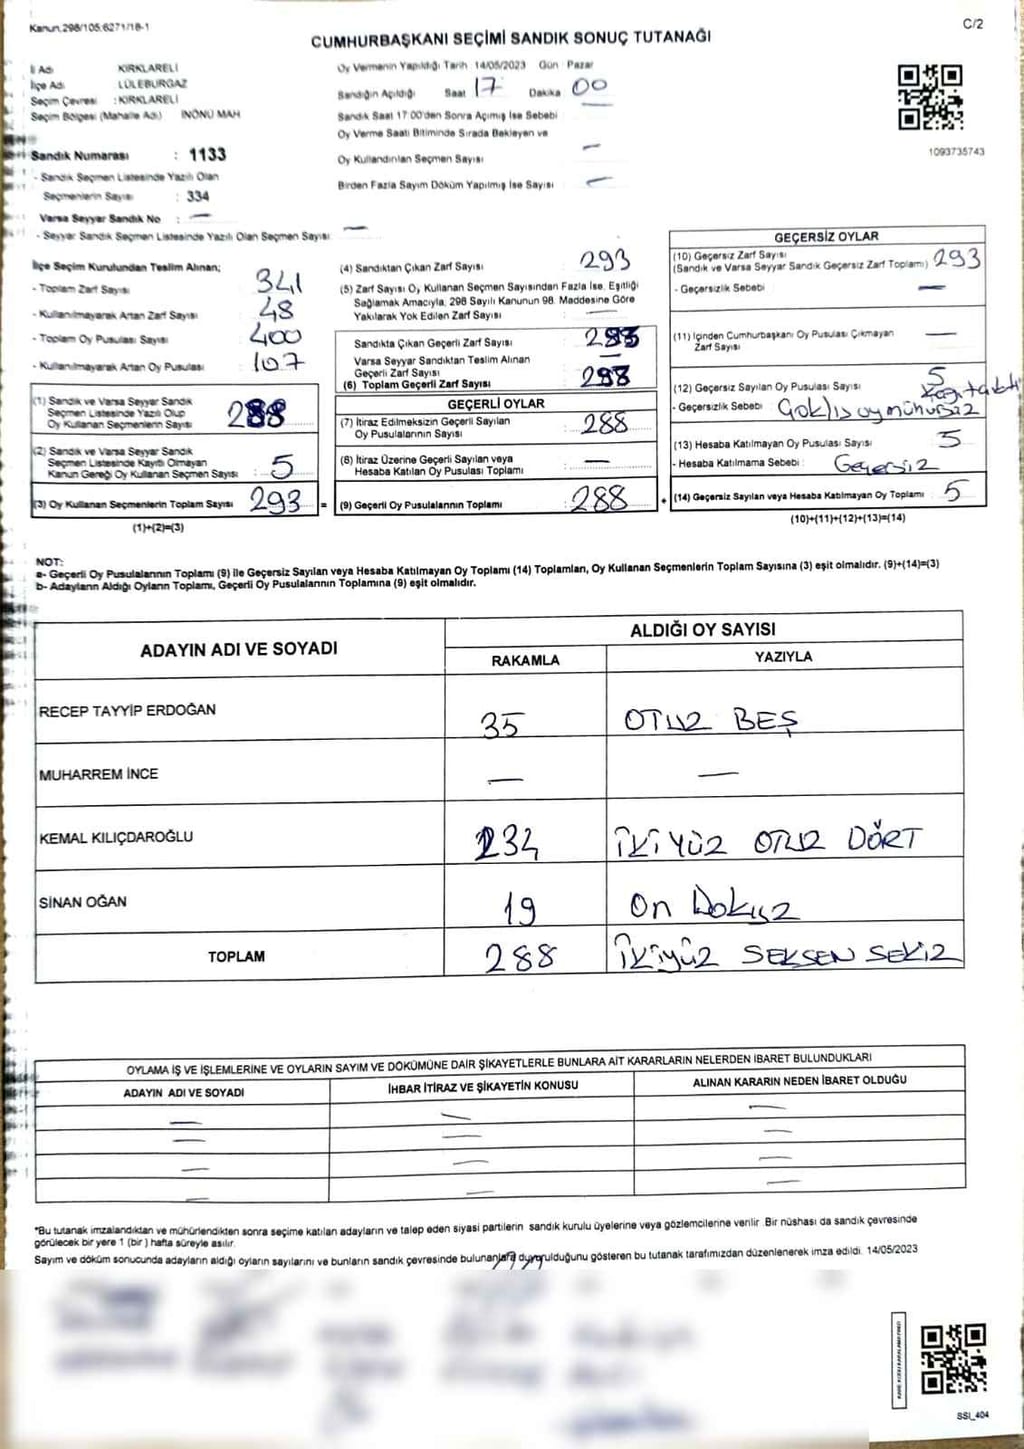 Kanun.298/105.6271/18-1
C/2
CUMHURBAŞKANI SEÇİMİ SANDIK SONUÇ TUTANAĞI
İl Adı KIRKLARELİ
İlçe Adı LÜLEBURGAZ
Seçim Çevresi : KIRKLARELİ
Seçim Bölgesi (Mahalle Adı) İNÖNÜ MAH
Sandık Numarası : 1133
- Sandık Seçmen Listesinde Yazılı Olan
Seçmenlerin Sayısı : 334
Varsa Seyyar Sandık No : —
- Seyyar Sandık Seçmen Listesinde Yazılı Olan Seçmen Sayısı —
Oy Vermenin Yapıldığı Tarih 14/05/2023 Gün Pazar
Sandığın Açıldığı Saat 17 Dakika 00
Sandık Saat 17 00'den Sonra Açımış İse Sebebi —
Oy Verme Saati Bitiminde Sırada Bekleyen ve
Oy Kullandırılan Seçmen Sayısı —
Birden Fazla Sayım Döküm Yapılmış İse Sayısı —
1093735743
İlçe Seçim Kurulundan Teslim Alınan;
- Toplam Zarf Sayısı 341
- Kullanılmayarak Artan Zarf Sayısı 48
- Toplam Oy Pusulası Sayısı 400
- Kullanılmayarak Artan Oy Pusulası 107
(1) Sandık ve Varsa Seyyar Sandık
Seçmen Listesinde Yazılı Olup
Oy Kullanan Seçmenlerin Sayısı 288
(2) Sandık ve Varsa Seyyar Sandık
Seçmen Listesinde Kayıtlı Olmayan
Kanun Gereği Oy Kullanan Seçmen Sayısı : 5
(3) Oy Kullanan Seçmenlerin Toplam Sayısı 293 =
(1)+(2)=(3)
(4) Sandıktan Çıkan Zarf Sayısı 293
(5) Zarf Sayısı Oy Kullanan Seçmen Sayısından Fazla İse, Eşitliği
Sağlamak Amacıyla, 298 Sayılı Kanunun 98. Maddesine Göre
Yakılarak Yok Edilen Zarf Sayısı —
Sandıkta Çıkan Geçerli Zarf Sayısı 293
Varsa Seyyar Sandıktan Teslim Alınan
Geçerli Zarf Sayısı —
(6) Toplam Geçerli Zarf Sayısı 288
GEÇERLİ OYLAR
(7) İtiraz Edilmeksizin Geçerli Sayılan
Oy Pusulalarının Sayısı 288
(8) İtiraz Üzerine Geçerli Sayılan veya
Hesaba Katılan Oy Pusulası Toplamı —
(9) Geçerli Oy Pusulalarının Toplamı 288 +
GEÇERSİZ OYLAR
(10) Geçersiz Zarf Sayısı
(Sandık ve Varsa Seyyar Sandık Geçersiz Zarf Toplamı) 293
- Geçersizlik Sebebi —
(11) İçinden Cumhurbaşkanı Oy Pusulası Çıkmayan
Zarf Sayısı —
(12) Geçersiz Sayılan Oy Pusulası Sayısı 5
- Geçersizlik Sebebi
(13) Hesaba Katılmayan Oy Pusulası Sayısı 5
- Hesaba Katılmama Sebebi : Geçersiz
(14) Geçersiz Sayılan veya Hesaba Katılmayan Oy Toplamı 5
(10)+(11)+(12)+(13)=(14)
NOT:
a- Geçerli Oy Pusulalarının Toplamı (9) ile Geçersiz Sayılan veya Hesaba Katılmayan Oy Toplamı (14) Toplamları, Oy Kullanan Seçmenlerin Toplam Sayısına (3) eşit olmalıdır. (9)+(14)=(3)
b- Adayların Aldığı Oyların Toplamı, Geçerli Oy Pusulalarının Toplamına (9) eşit olmalıdır.
ADAYIN ADI VE SOYADI
ALDIĞI OY SAYISI
RAKAMLA YAZIYLA
RECEP TAYYİP ERDOĞAN 35 OTUZ BEŞ
MUHARREM İNCE — —
KEMAL KILIÇDAROĞLU 234 İKİ YÜZ OTUZ DÖRT
SİNAN OĞAN 19 On Dokuz
TOPLAM 288 İKİYÜZ SEKSEN SEKİZ
OYLAMA İŞ VE İŞLEMLERİNE VE OYLARIN SAYIM VE DÖKÜMÜNE DAİR ŞİKAYETLERLE BUNLARA AİT KARARLARIN NELERDEN İBARET BULUNDUKLARI
ADAYIN ADI VE SOYADI İHBAR İTİRAZ VE ŞİKAYETİN KONUSU ALINAN KARARIN NEDEN İBARET OLDUĞU
— — —
— — —
— — —
— — —
*Bu tutanak imzalandıktan ve mühürlendikten sonra seçime katılan adayların ve talep eden siyasi partilerin sandık kurulu üyelerine veya gözlemcilerine verilir Bir nüshası da sandık çevresinde
görülecek bir yere 1 (bir ) hafta süreyle asılır.
Sayım ve döküm sonucunda adayların aldığı oyların sayılarını ve bunların sandık çevresinde bulunanlara duyurulduğunu gösteren bu tutanak tarafımızdan düzenlenerek imza edildi. 14/05/2023
SSI_404